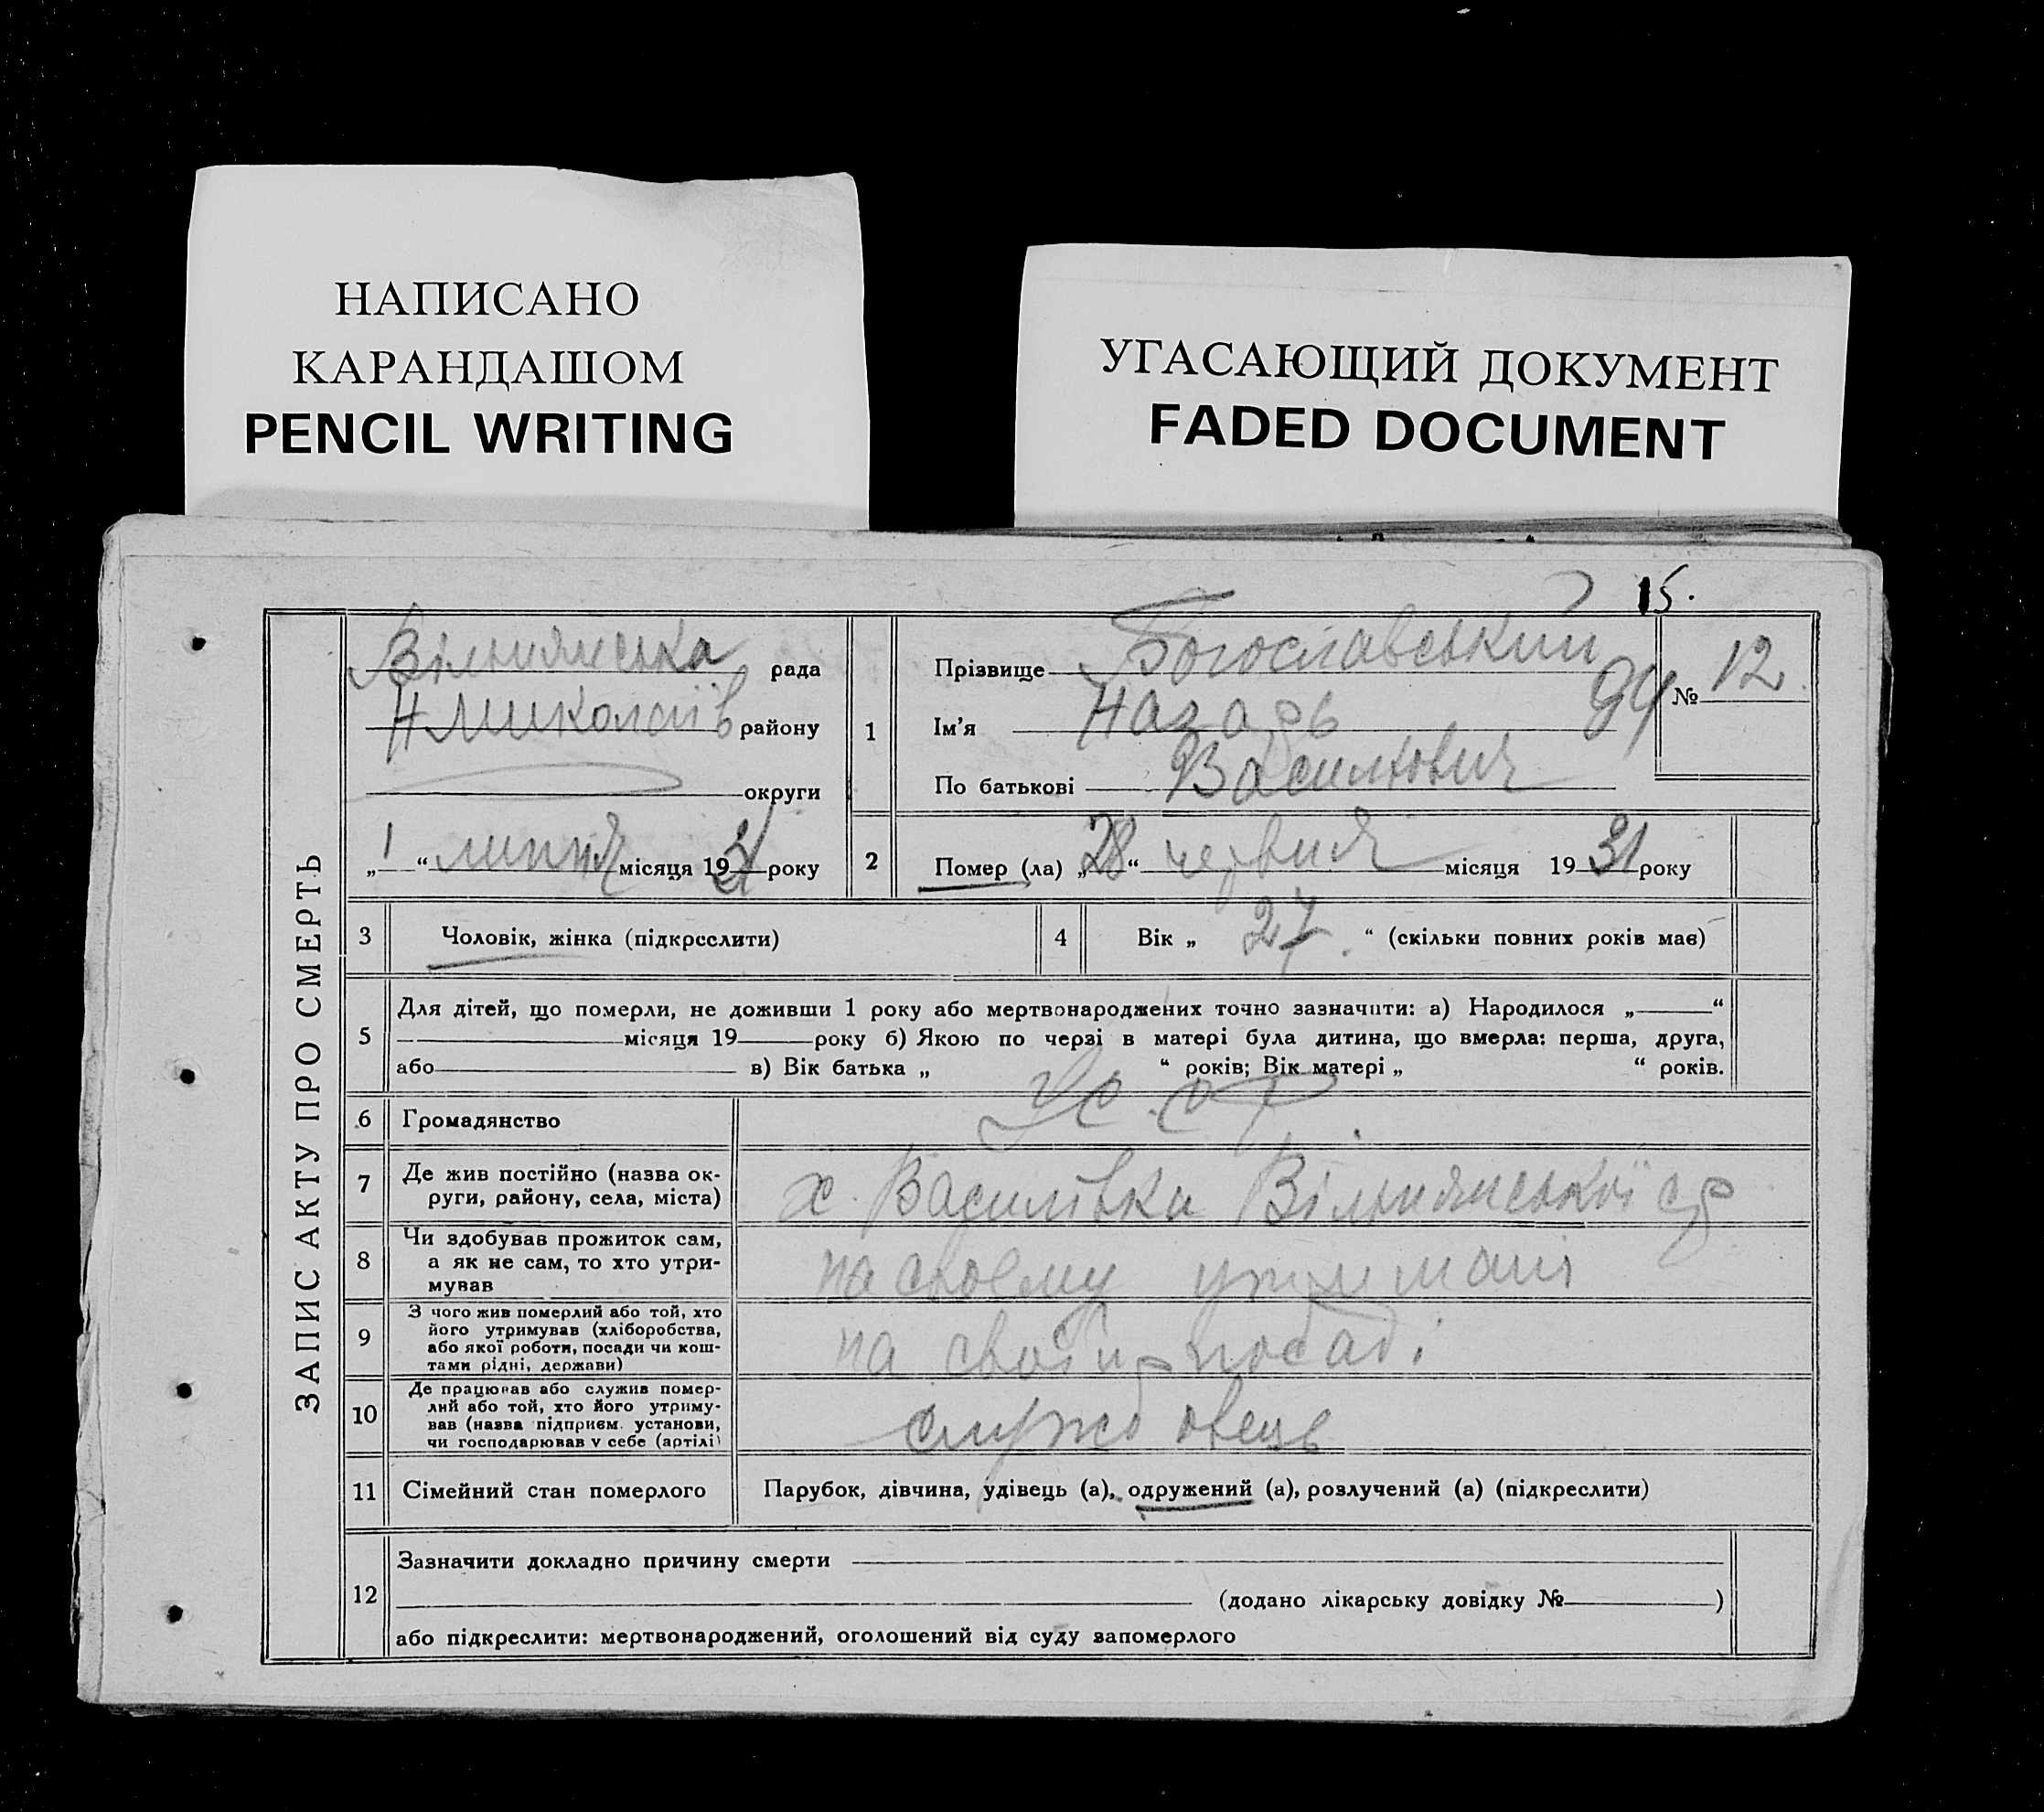 НАПИСАНО
КАРАНДАШОМ
PENCIL WRITING
УГАСАЮЩИЙ ДОКУМЕНТ
FADED DOCUMENT
15.
ЗАПИС АКТУ ПРО СМЕРТЬ
Вільнянська рада
Н Миколаїв району
округи
„1“ липня місяця 1931 року
1
Прізвище Богославський
Ім'я Назарь 94
По батькові Василович
№ 12
2
Помер (ла) „28“ червня місяця 1931 року
3 Чоловік, жінка (підкреслити)
4 Вік „27.“ (скільки повних років має)
5
Для дітей, що померли, не доживши 1 року або мертвонароджених точно зазначити: а) Народилося „ “
місяця 19 року б) Якою по черзі в матері була дитина, що вмерла: перша, друга,
або в) Вік батька „ “ років; Вік матері „ “ років.
6 Громадянство
7 Де жив постійно (назва ок-
руги, району, села, міста)
х. Василівка Вільнянської с/р
8 Чи здобував прожиток сам,
а як не сам, то хто утри-
мував
на своему утримані
9 З чого жив померлий або той, хто
його утримував (хліборобства,
або якої роботи, посади чи кош-
тами рідні, держави)
на своїй посаді
10 Де працював або служив помер-
лий або той, хто його утриму-
вав (назва підприєм. установи,
чи господарював у себе (артілі)
службовець
11 Сімейний стан померлого
Парубок, дівчина, удівець (а), одружений (а), розлучений (а) (підкреслити)
12
Зазначити докладно причину смерти
(додано лікарську довідку № )
або підкреслити: мертвонароджений, оголошений від суду запомерлого